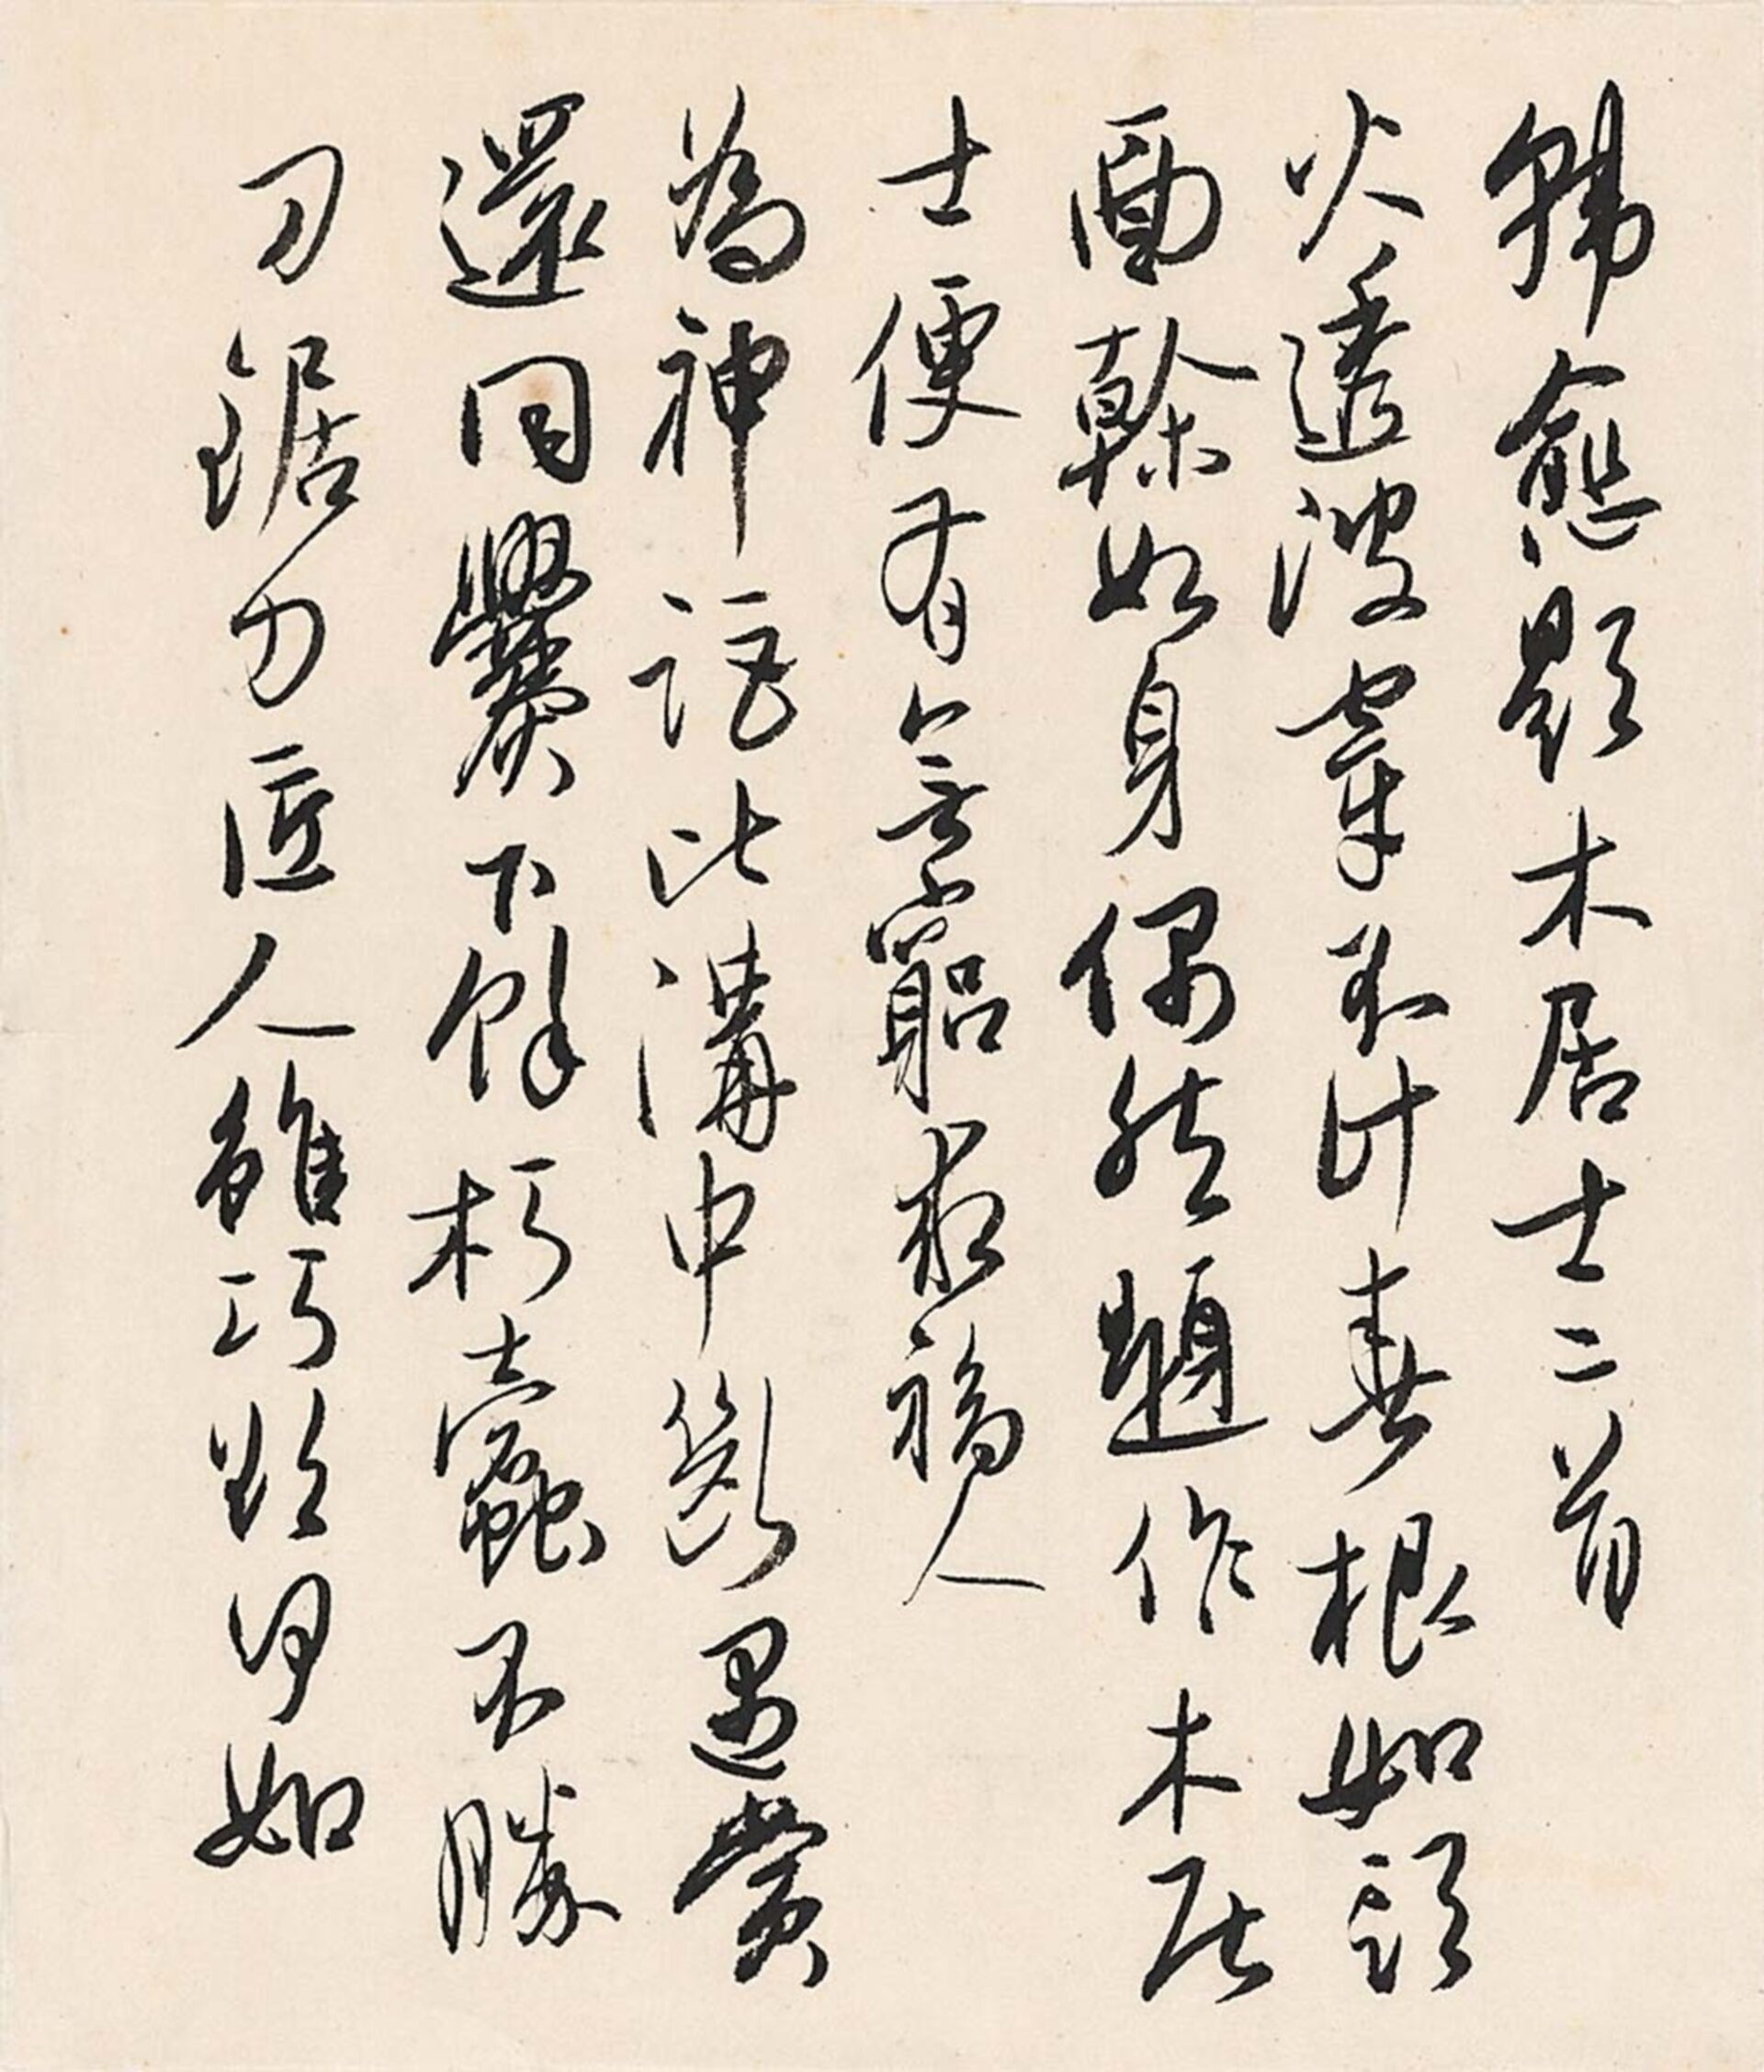 韓愈題木居士二首
火透波穿不計春根如頭
面榦如身偶然題作木居
士便有無窮求福人
為神詎比溝中斷遇賞
還同爨下餘朽蠹不勝
刀鋸力匠人雖巧欲何如